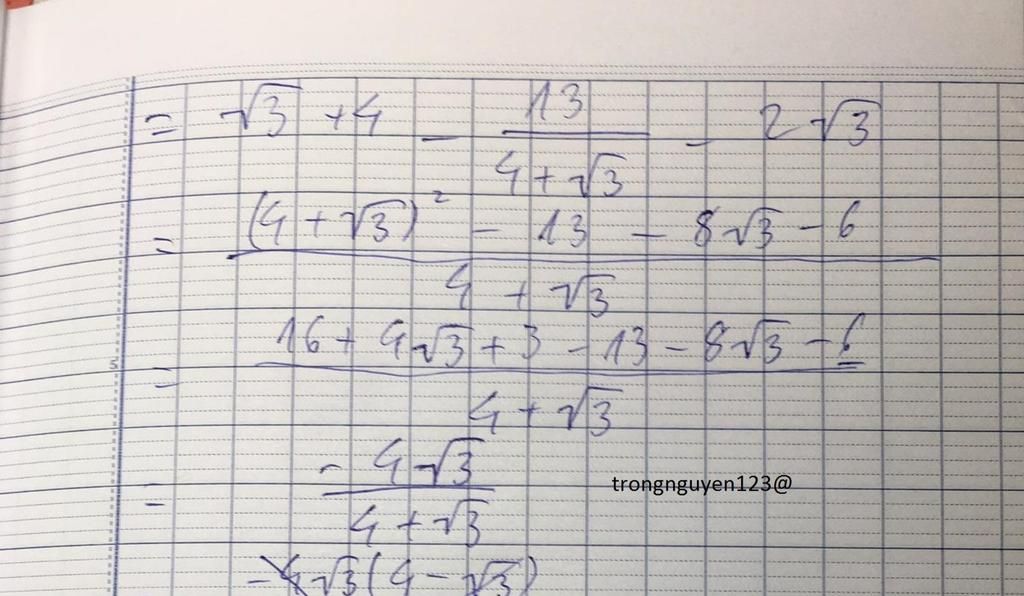 = √3 + 4 - 13/(4 + √3) - 2√3
= ((4 + √3)² - 13 - 8√3 - 6)/(4 + √3)
= (16 + 4√3 + 3 - 13 - 8√3 - 6)/(4 + √3)
= (-4√3)/(4 + √3)
trongnguyen123@
-4√3(4 - √3)